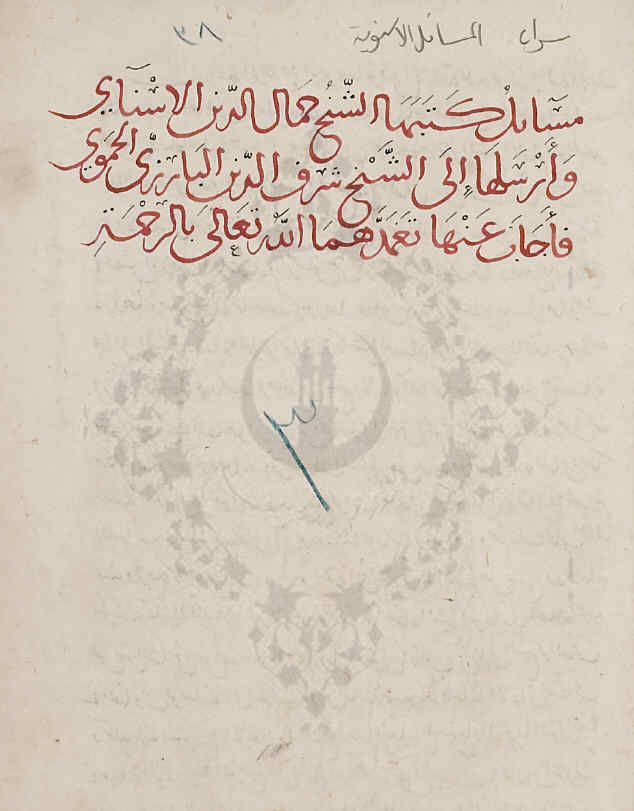 المسائل الاسنوية ٣٨
مسائل كتبها الشيخ جمال الدين الاسنايي
وأرسلها إلى الشيخ شرف الدين البارزي الحموي
فأجاب عنها تغمدهما الله تعالى بالرحمة
٣